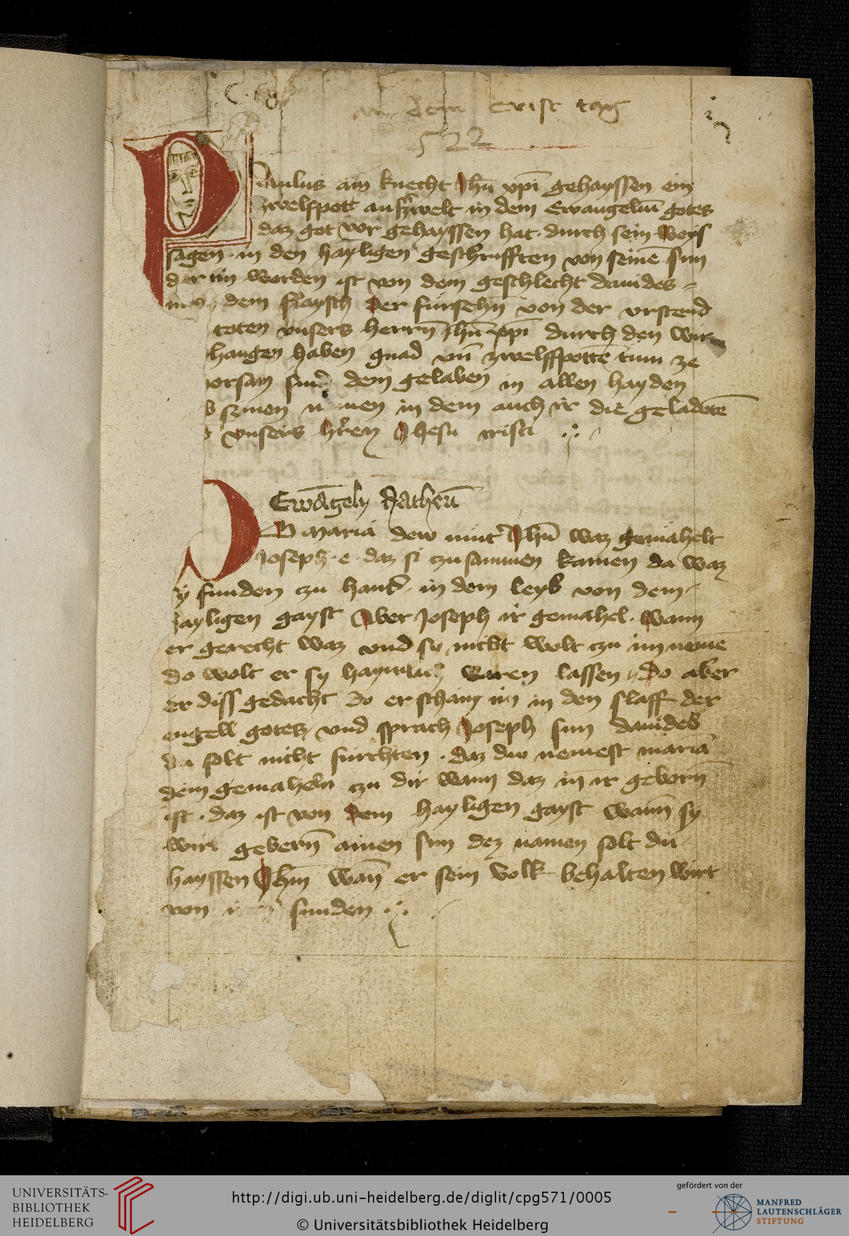 dem Crist tag
522
Paulus ain knecht Jhū xpī gehayssen ein
zwelfpott auszerwelt in dem Ewangeliū gotes
daz got vor gehayssen hat · durch sein weys
sagen · in den hayligen geschrifften von seinē sun
der im worden ist von dem geschlecht dauides
dem flaysch der fürsehn von der vrstend
toten vnsers herrn Jhū xpī durch den wir
hangen haben gnad vn̄ zwelffpottē tum ze
orsam dem gelauben in allen hayden
in dem auch ir die geladetē
vnsers hr̄en Jhesu cristi
Ewāgely Matheū
D Maria dew muter Jhū waz gemahelt
Joseph · e · daz si zusammen kamen da waz
sy funden czu hant · in dem leyb von dem
hayligen gayst Aber Joseph ir gemahel · wann
er gerecht waz vnd sy nicht wolt czu im neme
do wolt er sy haymlich varen lassen · Do aber
er diss gedacht do erschain im in den slaff der
engell gotetz vnd sprach Joseph sun dauides
du solt nicht fürchten · daz du nemest maria
dein gemaheln czu dir wann daz in ir geborn̄
ist · daz ist von dem hayligen gayst wann sy
wirt gebern̄ ainen sun dez namen solt du
hayssen Jhm̄ wan̄ er sein volk behalten wirt
von sunden
UNIVERSITÄTS-
BIBLIOTHEK
HEIDELBERG
http://digi.ub.uni-heidelberg.de/diglit/cpg571/0005
© Universitätsbibliothek Heidelberg
gefördert von der
MANFRED
LAUTENSCHLÄGER
STIFTUNG